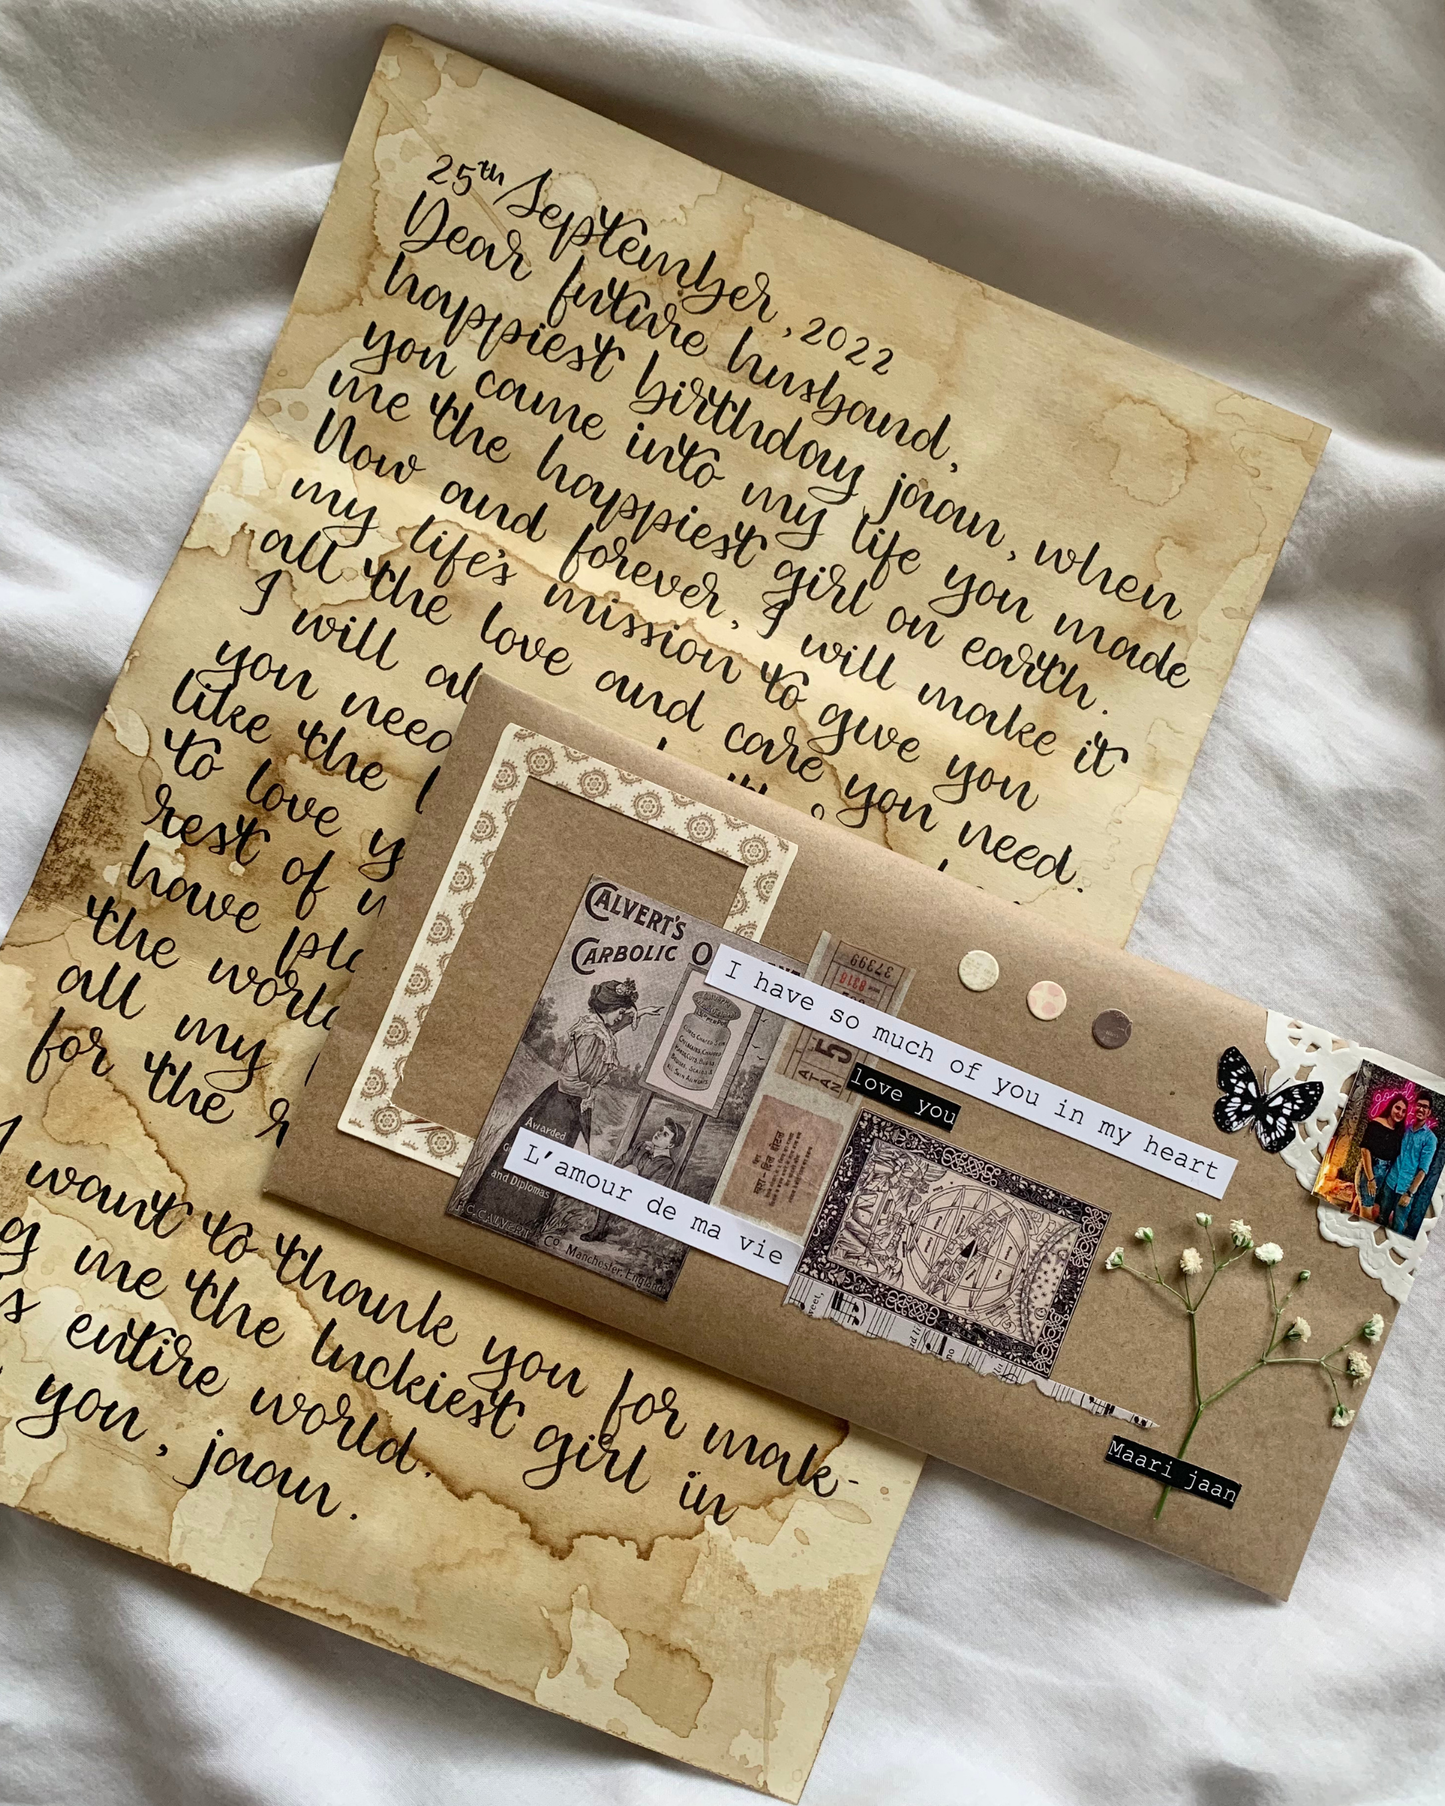 25th September, 2022
Dear future husband,
happiest birthday jaan, when
you came into my life you made
me the happiest girl on earth.
Now and forever, I will make it
my life's mission to give you
all the love and care you need.
I will al
you need
like the
to love y
rest of
have pl
the worl
all my
for the
I want to thank you for mak-
g me the luckiest girl in
s entire world.
you, jaan.
CALVERT'S
CARBOLIC O
Awarded
and Diplomas
F.C. CALVERT & Co. Manchester, England
I have so much of you in my heart
love you
L'amour de ma vie
37399
8316
5
good
Maari jaan